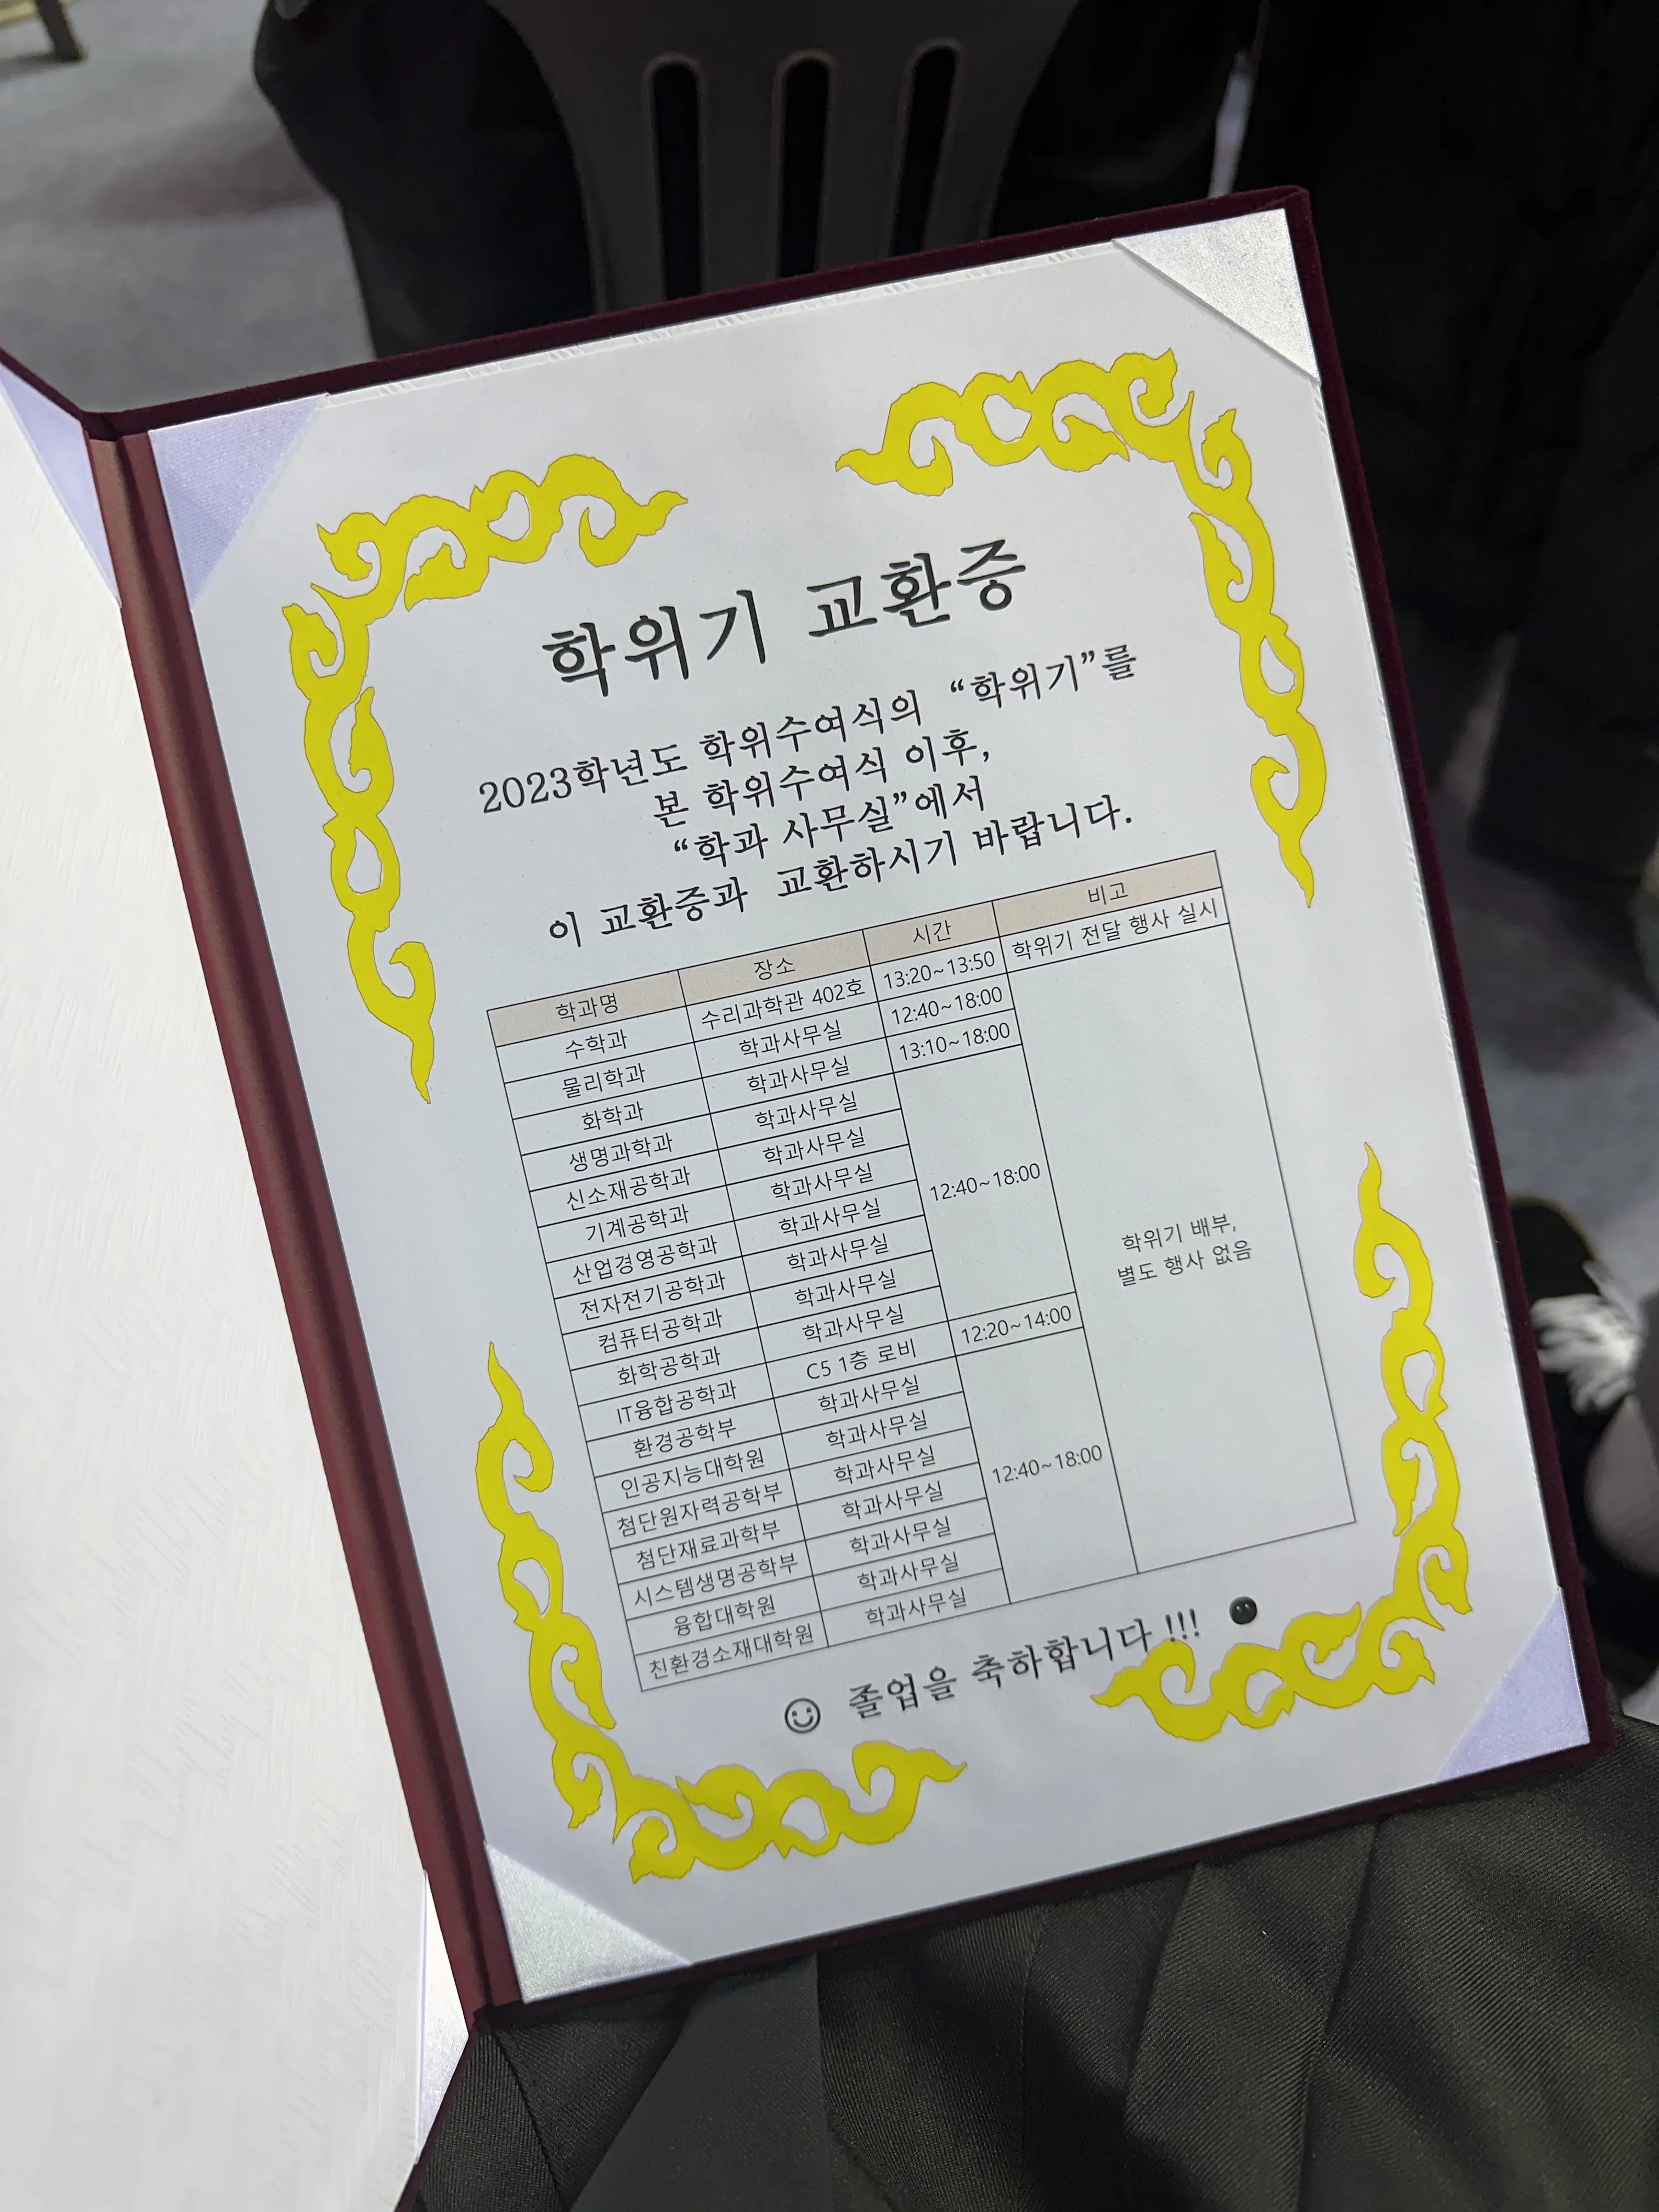 학위기 교환증
2023학년도 학위수여식의 “학위기”를
본 학위수여식 이후,
“학과 사무실”에서
이 교환증과 교환하시기 바랍니다.
학과명 장소 시간 비고
수학과 수리과학관 402호 13:20~13:50 학위기 전달 행사 실시
물리학과 학과사무실 12:40~18:00
화학과 학과사무실 13:10~18:00
생명과학과 학과사무실
신소재공학과 학과사무실
기계공학과 학과사무실
산업경영공학과 학과사무실 12:40~18:00
전자전기공학과 학과사무실
컴퓨터공학과 학과사무실
화학공학과 학과사무실
IT융합공학과 C5 1층 로비 12:20~14:00
환경공학부 학과사무실
인공지능대학원 학과사무실
첨단원자력공학부 학과사무실
첨단재료과학부 학과사무실 12:40~18:00
시스템생명공학부 학과사무실
융합대학원 학과사무실
친환경소재대학원 학과사무실
학위기 배부,
별도 행사 없음
☺ 졸업을 축하합니다 !!! ☻